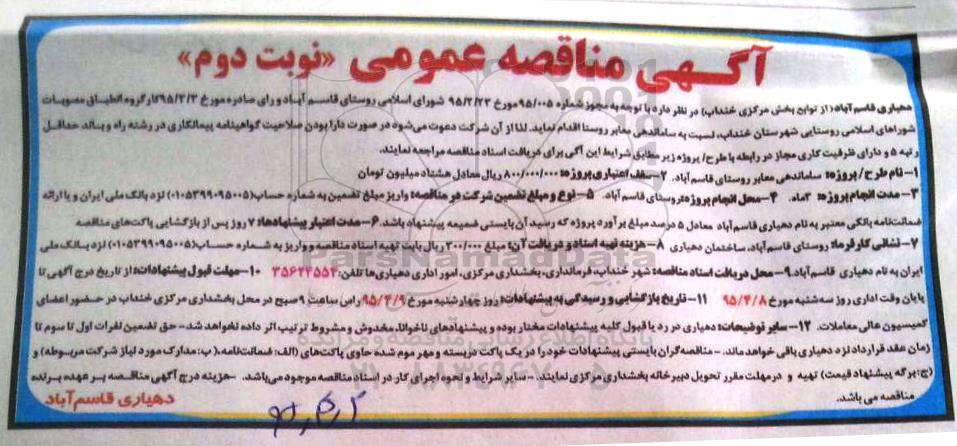 آگهی مناقصه عمومی «نوبت دوم»
دهیاری قاسم آباد (از توابع بخش مرکزی خنداب) در نظر دارد با توجه به مجوز شماره ۹۵/۰۰۵ مورخ ۹۵/۲/۲۳ شورای اسلامی روستای قاسم آباد و رای صادره مورخ ۹۵/۳/۳ کارگروه انطباق مصوبات
شوراهای اسلامی روستایی شهرستان خنداب، نسبت به ساماندهی معابر روستا اقدام نماید. لذا از آن شرکت دعوت می‌شود در صورت دارا بودن صلاحیت گواهینامه پیمانکاری در رشته راه و باند حداقل
رتبه ۵ و دارای ظرفیت کاری مجاز در رابطه با طرح/ پروژه زیر مطابق شرایط این آگی برای دریافت اسناد مناقصه مراجعه نمایند.
۱-نام طرح/ پروژه: ساماندهی معابر روستای قاسم آباد. ۲-سقف اعتباری پروژه: ۸۰۰/۰۰۰/۰۰۰ ریال معادل هشتاد میلیون تومان
۳-مدت انجام پروژه: ۳ماه. ۴-محل انجام پروژه: روستای قاسم آباد. ۵-نوع و مبلغ تضمین شرکت در مناقصه: واریز مبلغ تضمین به شماره حساب(۰۱۰۵۳۹۹۰۹۵۰۰۵) نزد بانک ملی ایران و یا ارائه
ضمانتنامه بانکی معتبر به نام دهیاری قاسم‌آباد معادل ۵ درصد مبلغ برآورد پروژه که رسید آن بایستی ضمیمه پیشنهاد باشد. ۶-مدت اعتبار پیشنهادها: ۷ روز پس از بازگشایی پاکت‌های مناقصه
۷-نشانی کارفرما: روستای قاسم‌آباد، ساختمان دهیاری ۸-هزینه تهیه اسناد و دریافت آن: مبلغ ۳۰۰/۰۰۰ ریال بابت تهیه اسناد مناقصه و واریز به شماره حساب(۰۱۰۵۳۹۹۰۹۵۰۰۵) نزد بانک ملی
ایران به نام دهیاری قاسم‌آباد. ۹-محل دریافت اسناد مناقصه: شهر خنداب، فرمانداری، بخشداری مرکزی، امور اداری دهیاری‌ها تلفن: ۳۵۶۲۴۵۵۲ ۱۰-مهلت قبول پیشنهادات: از تاریخ درج آگهی تا
پایان وقت اداری روز سه‌شنبه مورخ ۹۵/۴/۸ ۱۱-تاریخ بازگشایی و رسیدگی به پیشنهادات: روز چهارشنبه مورخ ۹۵/۴/۹ راس ساعت ۹ صبح در محل بخشداری مرکزی خنداب در حضور اعضای
کمیسیون عالی معاملات. ۱۲-سایر توضیحات: دهیاری در رد یا قبول کلیه پیشنهادات مختار بوده و پیشنهادهای ناخوانا، مخدوش و مشروط ترتیب اثر داده نخواهد شد- حق تضمین نفرات اول تا سوم تا
زمان عقد قرارداد نزد دهیاری باقی خواهد ماند. -مناقصه‌گران بایستی پیشنهادات خود را در یک پاکت دربسته و مهر موم شده حاوی پاکت‌های (الف: ضمانت‌نامه،(ب: مدارک مورد نیاز شرکت مربوطه) و
(ج: برگه پیشنهاد قیمت) تهیه و درمهلت مقرر تحویل دبیرخانه بخشداری مرکزی نمایند. -سایر شرایط و نحوه اجرای کار در اسناد مناقصه موجود می‌باشد. -هزینه درج آگهی مناقصه بر عهده برنده
مناقصه می باشد.
دهیاری قاسم‌آباد
ParsNamadData
پایگاه اطلاع رسانی مناقصه و مزایده